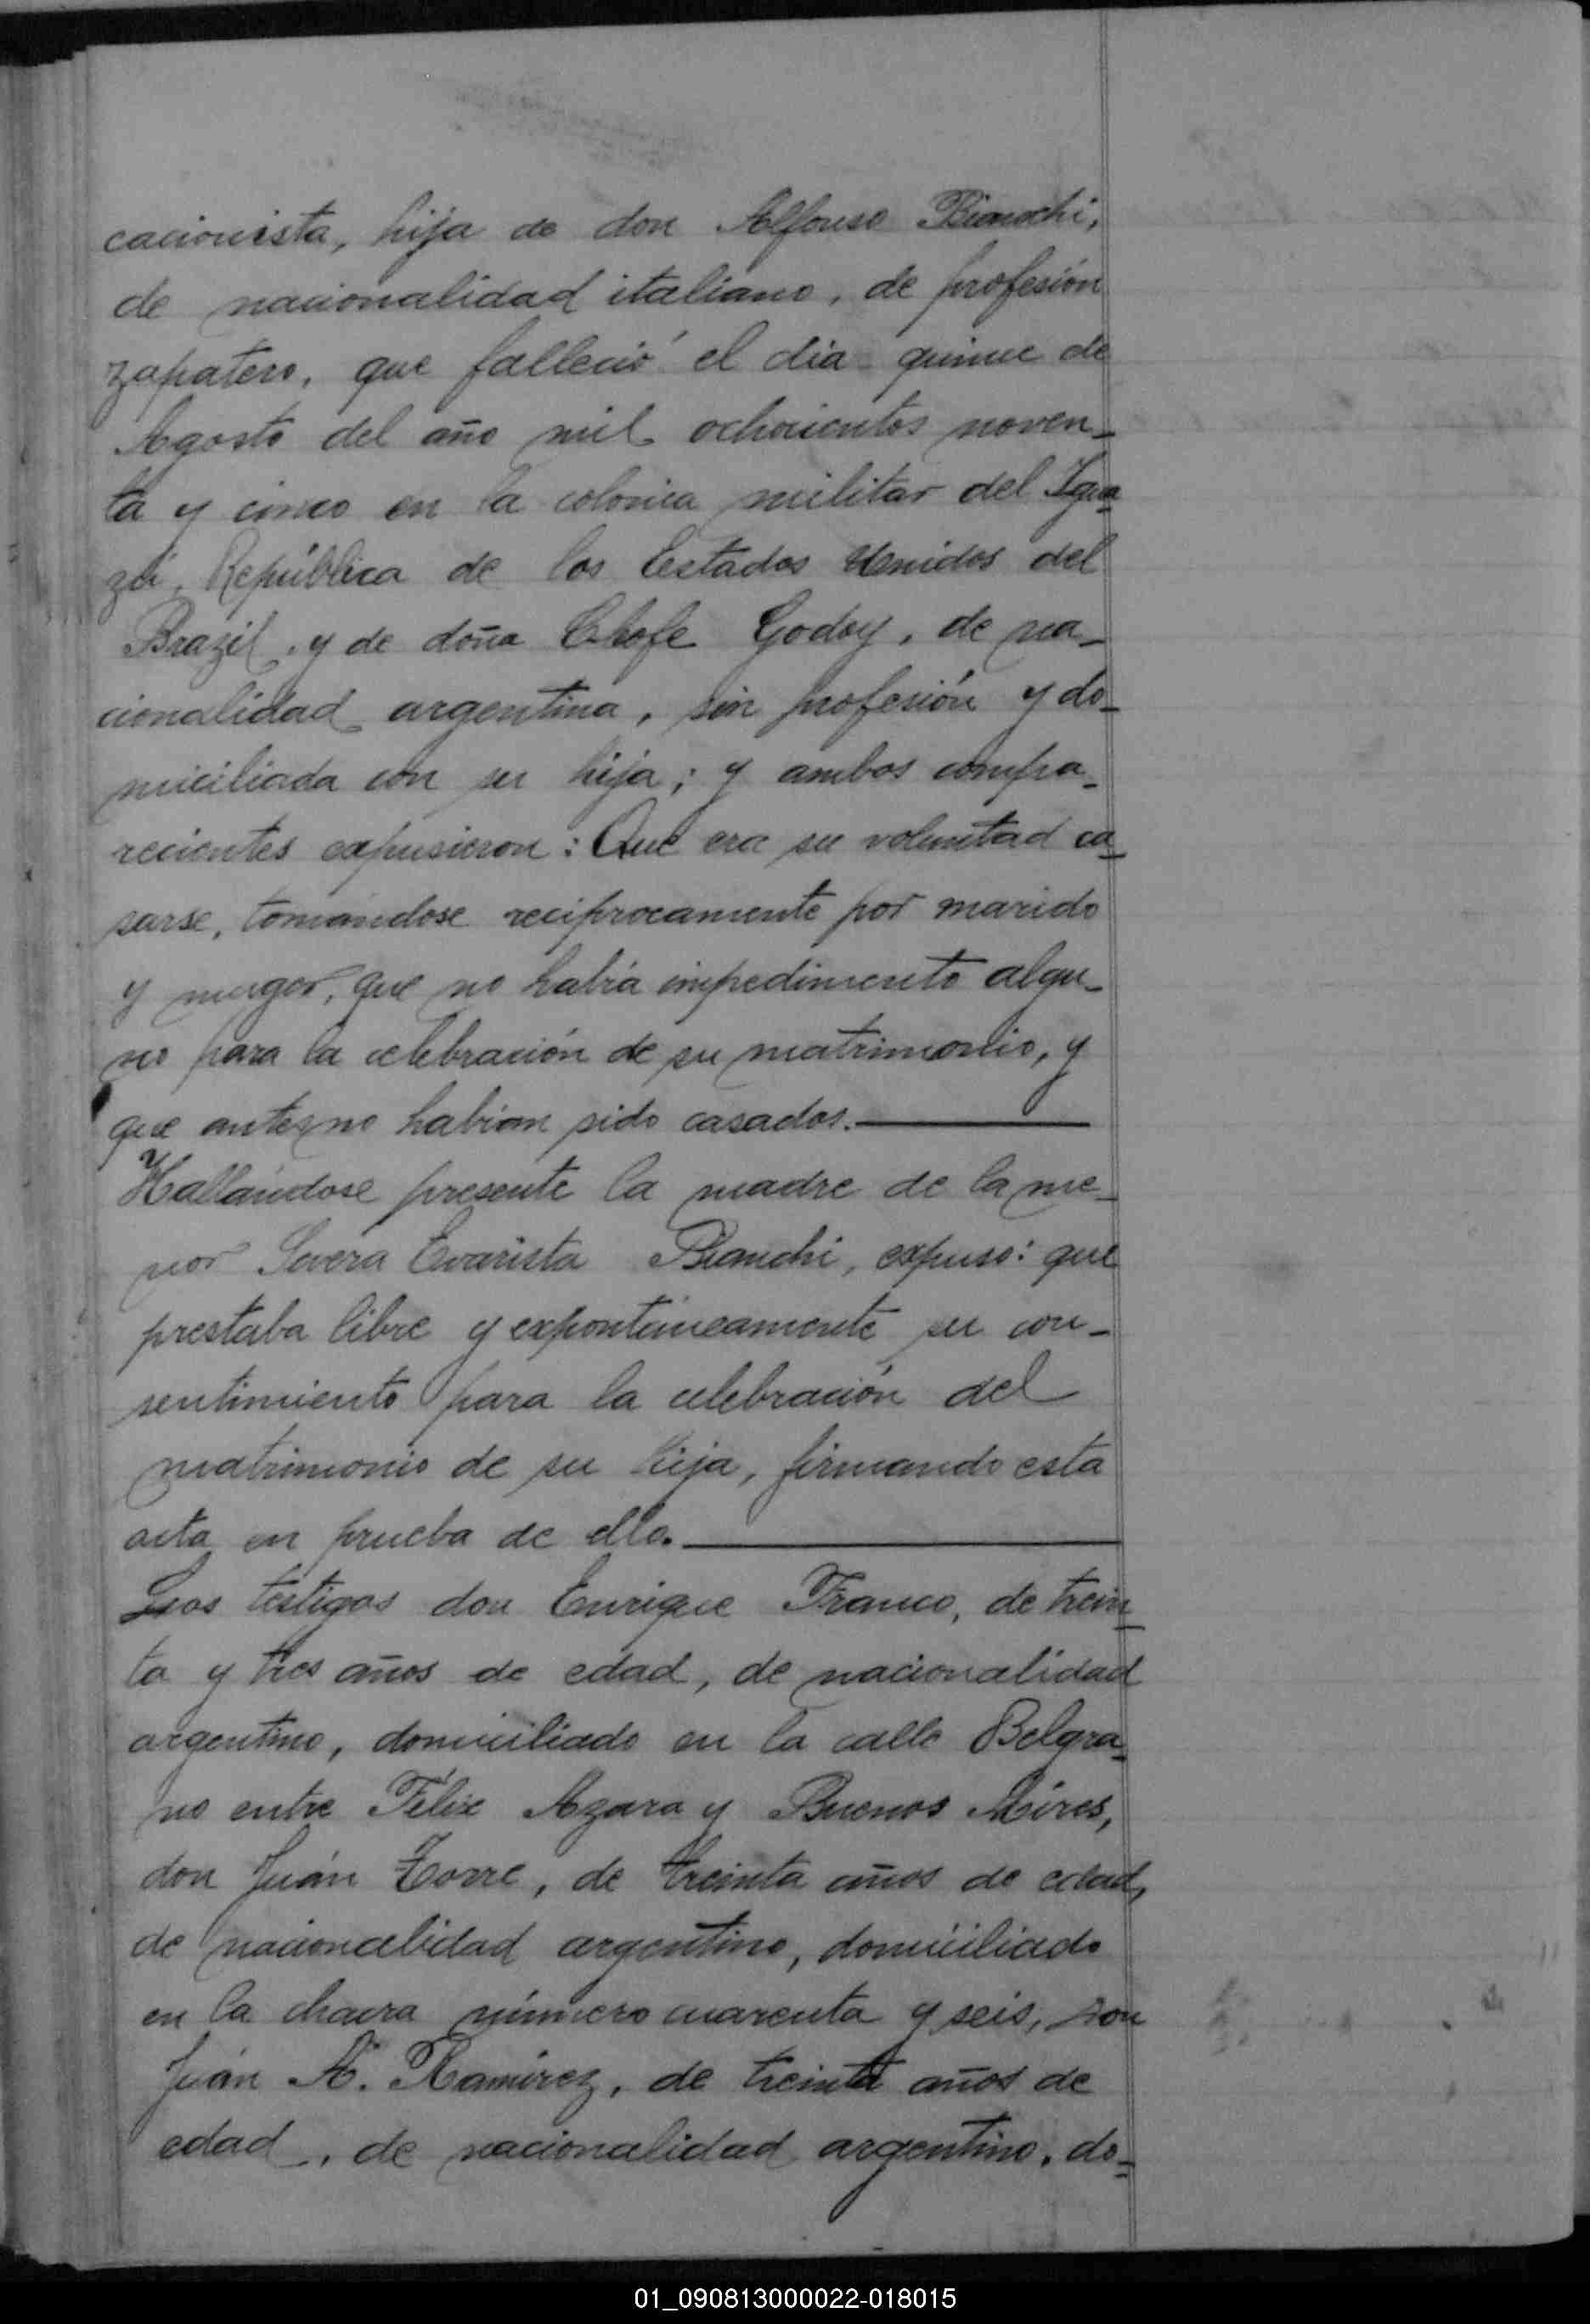 cacionista, hija de don Alfonso Bianchi,
de nacionalidad italiano, de profesión
zapatero, que falleció el dia quince de
Agosto del año mil ochocientos noven-
ta y cinco en la colonia militar del Igua-
zú, República de los Estados Unidos del
Brazil, y de doña Clofe Godoy, de na-
cionalidad argentina, sin profesión y do-
miciliada con su hija; y ambos compa-
recientes expusieron: Que era su voluntad ca-
sarse, tomándose reciprocamente por marido
y muger, que no había impedimento algu-
no para la celebración de su matrimonio, y
que antes no habían sido casados.
Hallándose presente la madre de la me-
nor Severa Evarista Bianchi, expuso: que
prestaba libre y expontáneamente su con-
sentimiento para la celebración del
matrimonio de su hija, firmando esta
acta en prueba de ello.
Los testigos don Enrique Franco, de trein-
ta y tres años de edad, de nacionalidad
argentino, domiciliado en la calle Belgra-
no entre Félix Azara y Buenos Aires,
don Juán Torre, de treinta años de edad,
de nacionalidad argentino, domiciliado
en la chacra número cuarenta y seis, don
Juán A. Ramírez, de treinta años de
edad, de nacionalidad argentino, do-
01_090813000022-018015